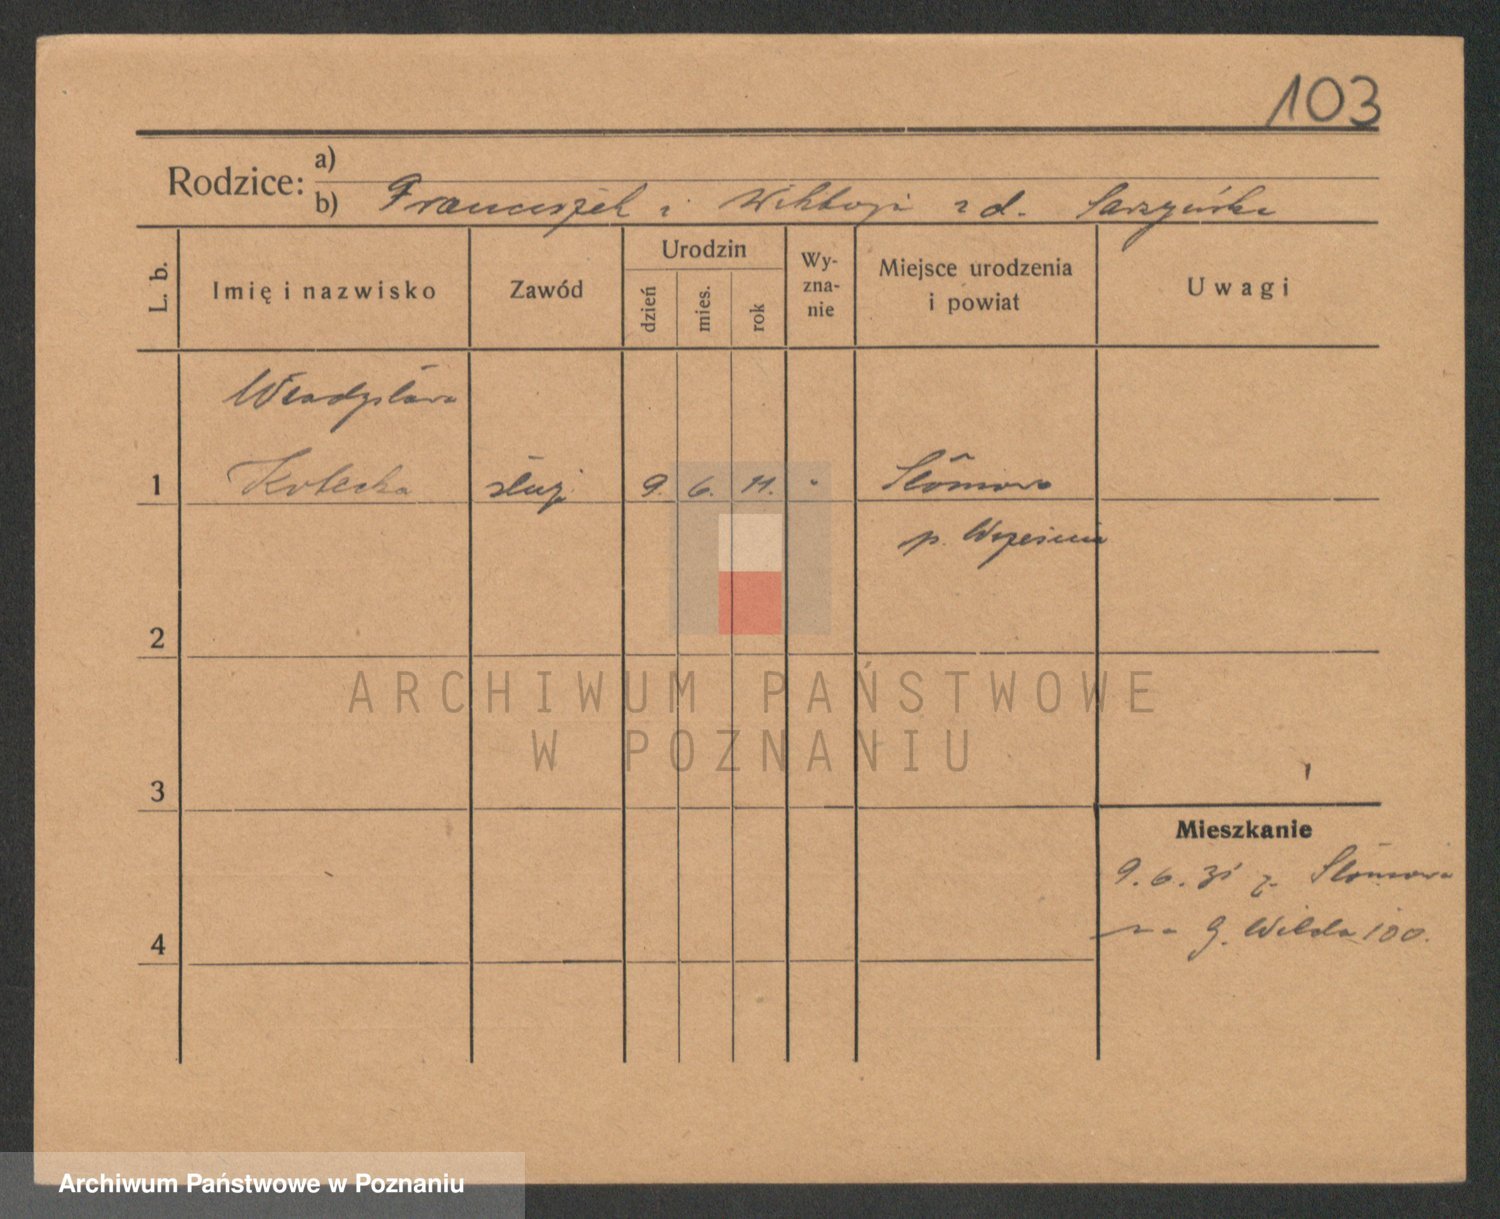 103
Rodzice: a)
b) Franciszek i Wiktorja z d.
L. b. Imię i nazwisko Zawód Urodzin dzień mies. rok Wy-zna-nie Miejsce urodzenia i powiat Uwagi
Władysława
1 Kotecka służ. 9. 6. 11. Słomowo
p. Września
2
ARCHIWUM PAŃSTWOWE
W POZNANIU
3
Mieszkanie
9.6.31 z Słomowa
na G. Wilda 100.
4
Archiwum Państwowe w Poznaniu